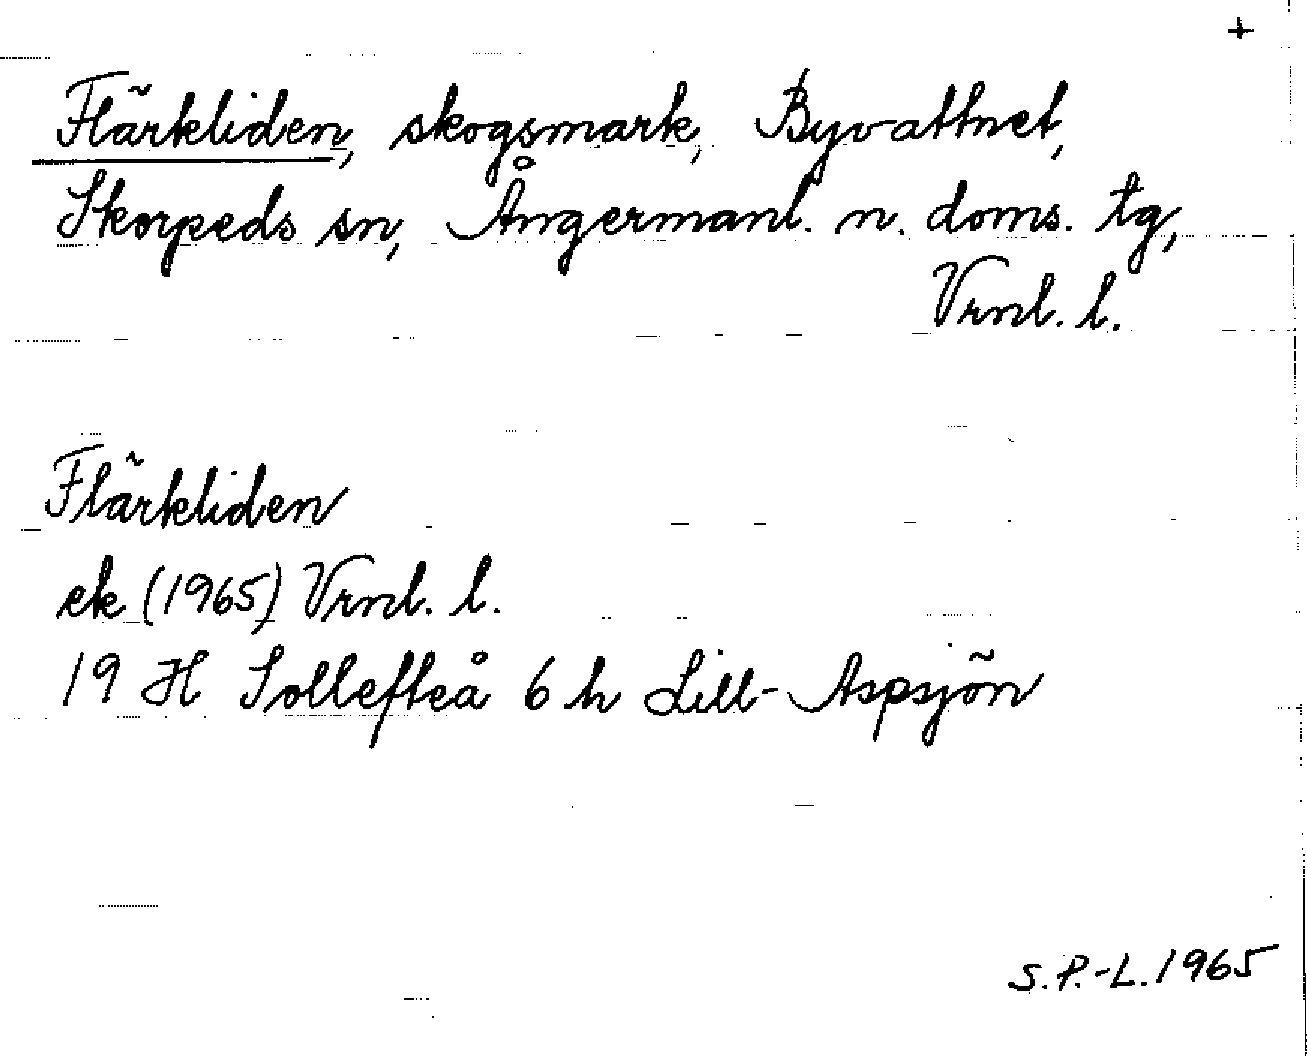 +
Flärkliden, skogsmark, Byvattnet,
Skorpeds sn, Ångermanl. n. doms. tg,
Vrnl. l.
Flärkliden
ek (1965) Vrnl. l.
19 H Sollefteå 6 h Lill-Aspsjön
S.P.-L. 1965